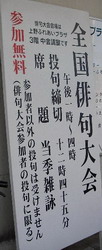 全国俳句大会
午後一時～四時
投句締切 十二時四十五分
席題 当季雑詠
参加者以外の投句は受けません
(俳句大会参加者の投句に限る)
参加無料
俳句大会会場は
上野ふれあいプラザ
3階 中会議室です